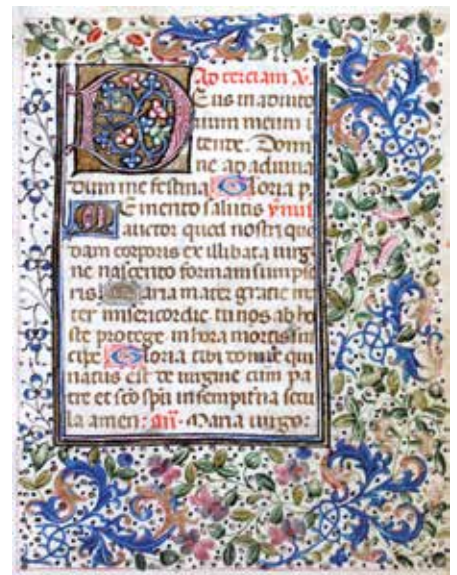 Ad terciam V.
Deus in adiuto
rium meum i
tende. Domi
ne ad adiuva
dum me festina Gloria p.
Memento salutis ymni
auctor quod nostri quo
dam corporis ex illibata virgi
ne nascendo formam sumpse
ris. Maria mater gratie ma
ter misericordie. tu nos ab ho
ste protege in hora mortis sus
cipe. Gloria tibi domine qui
natus est de virgine cum pa
tre et sco spū in sempiterna secu
la amen: an. Maria virgo: